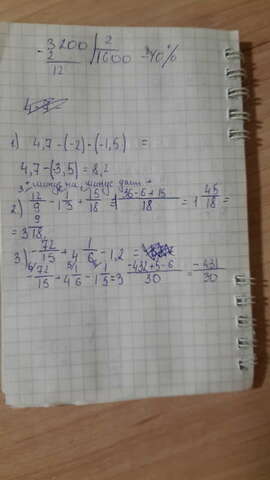 - 3200 | 2
2 | 1600 - 40%
12
1) 4,7-(-2)-(-1,5) =
4,7-(3,5) = 8,2
минус на минус даёт +
2) 12/9 - 1 1/3 + 15/18 = 36-6+15/18 = 1 45/18 =
= 3 9/18
3) -72/15 + 4 1/6 - 1,2 =
-72/15 + 4 1/6 - 1 1/5 = 3 -432+5-6/30 = -431/30